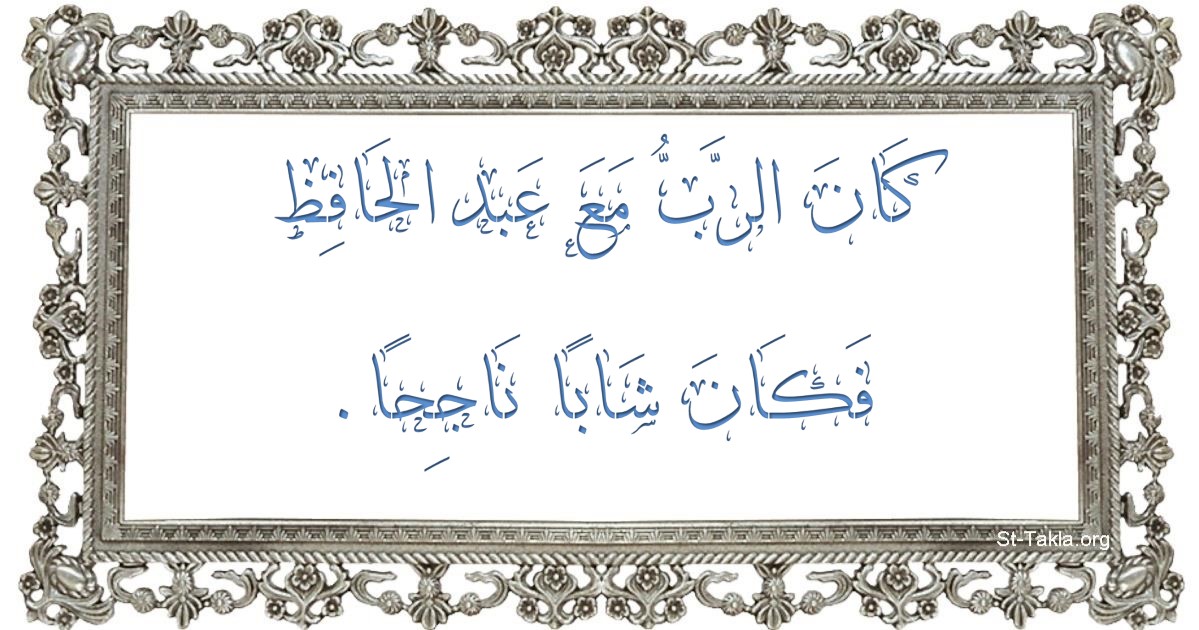 كَانَ الرَّبُّ مَعَ عَبْد الْحَافِظْ
فَكَانَ شَابًا نَاجِحًا .
St-Takla.org